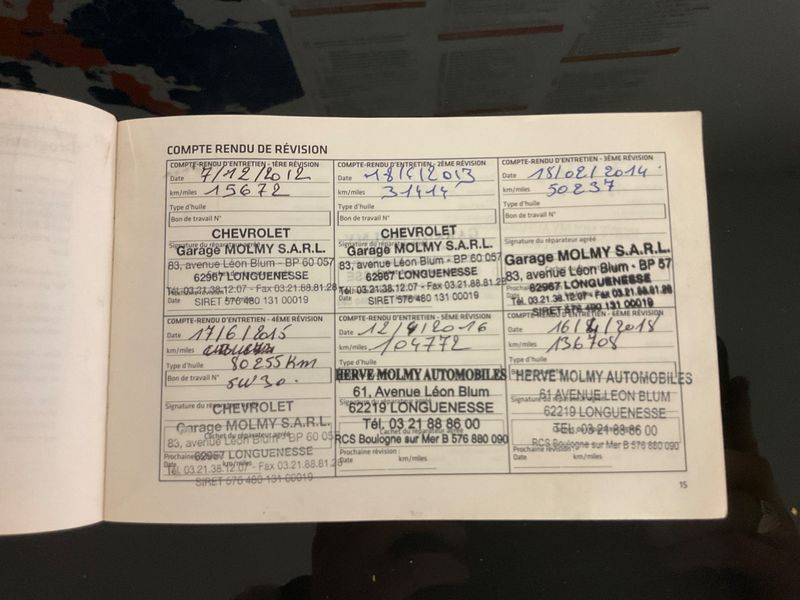 COMPTE RENDU DE RÉVISION
COMPTE-RENDU D'ENTRETIEN - 1ÈRE RÉVISION
Date 7/12/2012
km/miles 15672
Type d'huile
Bon de travail N°
Signature du réparateur agréé
CHEVROLET
Garage MOLMY S.A.R.L.
83, avenue Léon Blum - BP 60 057
62967 LONGUENESSE
Tél. 03.21.38.12.07 - Fax 03.21.88.81.28
Date
SIRET 576 480 131 00019
COMPTE-RENDU D'ENTRETIEN - 2ÈME RÉVISION
Date 18/4/2013
km/miles 31414
Type d'huile
Bon de travail N°
Signature du réparateur agréé
CHEVROLET
Garage MOLMY S.A.R.L.
83, avenue Léon Blum - BP 60 057
62967 LONGUENESSE
Tél. 03.21.38.12.07 - Fax 03.21.88.81.28
Date
SIRET 576 480 131 00019
COMPTE-RENDU D'ENTRETIEN - 3ÈME RÉVISION
Date 18/02/2014
km/miles 50237
Type d'huile
Bon de travail N°
Signature du réparateur agréé
Garage MOLMY S.A.R.L.
83, avenue Léon Blum - BP 57
62967 LONGUENESSE
Tél. 03.21.38.12.07 - Fax 03.21.88.81.28
Date
SIRET 576 480 131 00019
COMPTE-RENDU D'ENTRETIEN - 4ÈME RÉVISION
Date 17/6/2015
km/miles
Type d'huile 80255 Km
Bon de travail N° 5W30.
Signature du réparateur agréé
CHEVROLET
Garage MOLMY S.A.R.L.
Cachet du réparateur agréé
83, avenue Léon Blum - BP 60 057
62967 LONGUENESSE
Prochaine
Tél. 03.21.38.12.07 - Fax 03.21.88.81.28
Date km/miles
SIRET 576 480 131 00019
COMPTE-RENDU D'ENTRETIEN - 5ÈME RÉVISION
Date 12/4/2016
km/miles 104772
Type d'huile
HERVE MOLMY AUTOMOBILES
61, Avenue Léon Blum
62219 LONGUENESSE
Tél, 03 21 88 86 00
Cachet du réparateur agréé
RCS Boulogne sur Mer B 576 880 090
Prochaine révision :
Date km/miles
COMPTE-RENDU D'ENTRETIEN - 6ÈME RÉVISION
Date 16/4/2018
km/miles 136708
Type d'huile
HERVE MOLMY AUTOMOBILES
61 AVENUE LEON BLUM
62219 LONGUENESSE
TEL. 03 21 88 86 00
RCS Boulogne sur Mer B 576 880 090
Prochaine révision :
Date km/miles
15